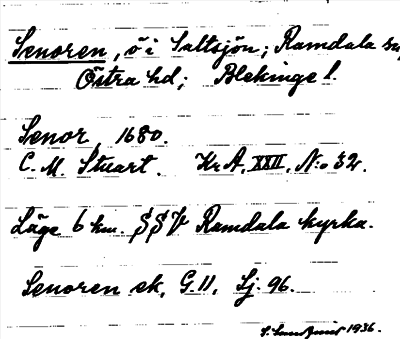 Senoren, ö i Saltsjön; Ramdala sn,
Östra hd; Blekinge l.
Senor, 1680.
C. M. Stuart. KrA, XXII, N:o 32.
Läge 6 km. SSV Ramdala kyrka.
Senoren ek. G. 11, Sj. 96.
1936.